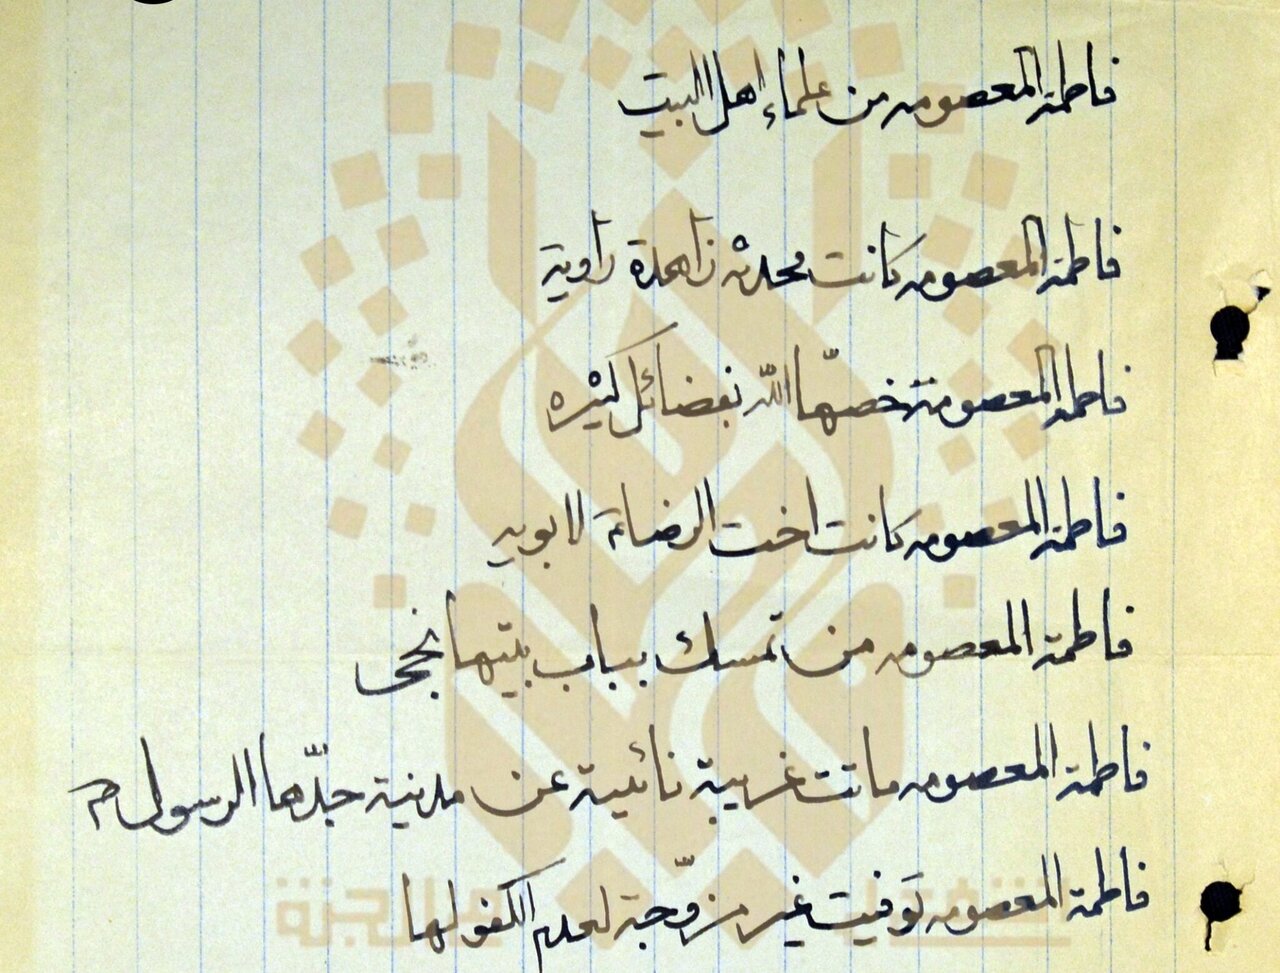 فاطمة المعصومه من علماء اهل البيت
فاطمة المعصومه كانت محدثه زاهدة راوية
فاطمة المعصومة خصهّا اللّه بفضائل كثيره
فاطمة المعصومه كانت اخت الرضا لابويه
فاطمة المعصومه من تمسك بباب بيتها نجى
فاطمة المعصومه ماتت غريبة نائية عن مدينة جدّها الرسول
فاطمة المعصومه توفيت غير مزوّجة لعدم الكفو لها